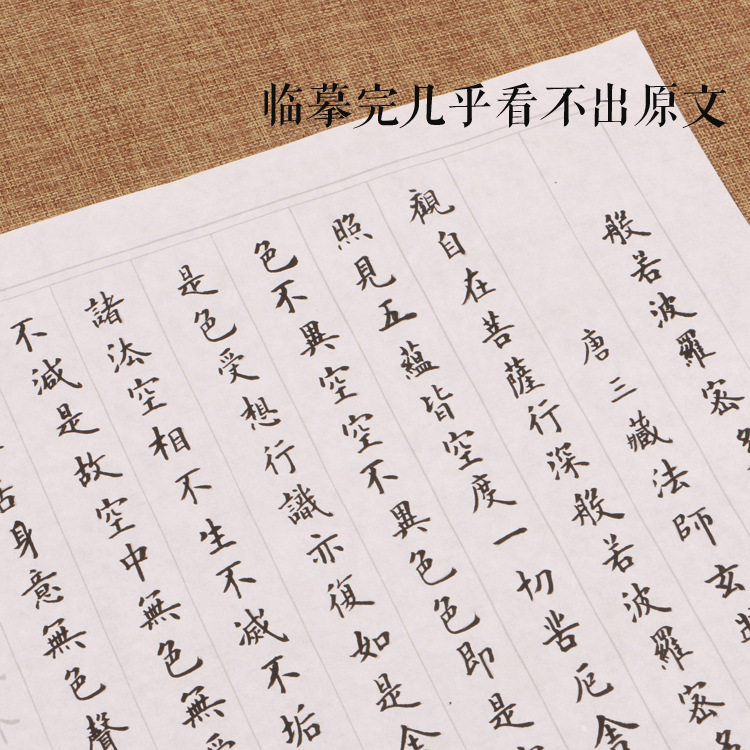 临摹完几乎看不出原文
般若波羅密
唐三藏法師玄
觀自在菩薩行深般若波羅密
照見五蘊皆空度一切苦厄舍
色不異空空不異色色即是
是色受想行識亦復如是舍
諸法空相不生不滅不垢
不減是故空中無色無受
舌身意無色聲